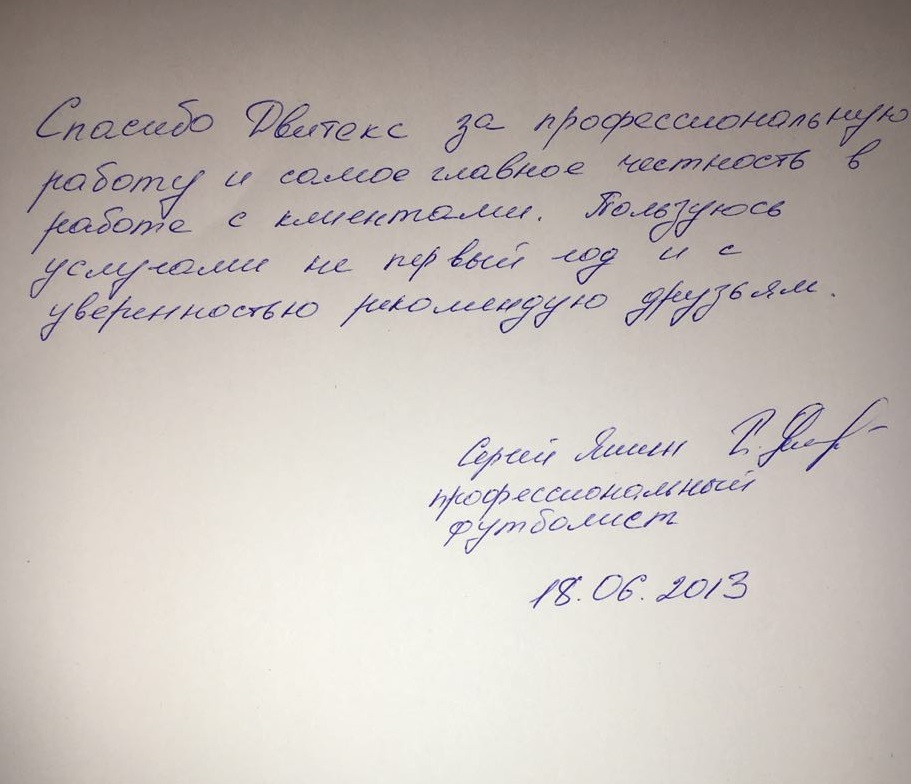 Спасибо Двитекс за профессиональную
работу и самое главное честность в
работе с клиентами. Пользуюсь
услугами не первый год и с
уверенностью рекомендую друзьям.
Сергей Яшин
профессиональный
футболист
18.06.2013